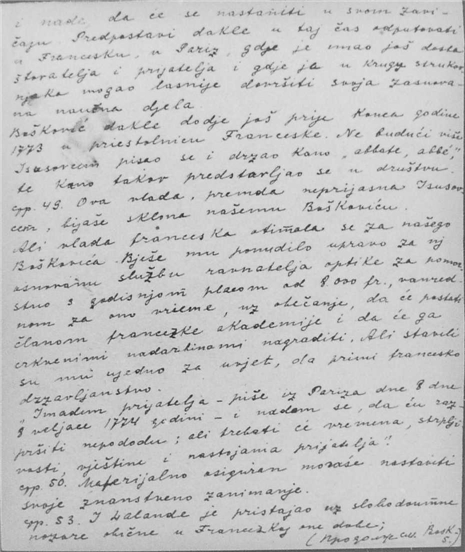 i nade, da će se nastaniti u svom zavi-
čaju. Predpostavi dakle u taj čas odputovati
u Francesku, u Pariz, gdje je imao još dosta
štovatelja i prijatelja i gdje je u krugu strukov
njaka mogao lasnije dovršiti svoja zasnova-
na naučna djela.
Bošković dakle dodje još prije konca godine
1773 u priestolnicu Franceske. Ne budući više
Isusovcem pisao se i držao kano „abbate, abbé,"
te kano takov predstavljao se u društvu.
cpp. 49. Ova vlada, premda neprijazna Isusov
cem, bijaše sklona našemu Boškoviću.
Ali vlada franceska otimala se za našega
Boškovića. Bješe mu ponudilo upravo za nj
osnovanu službu ravnatelja optike za pomor
stvo s godišnjom placom od 8000 fr., vanred
nom za ono vrieme, uz obećanje, da će postati
članom francezke akademije i da će ga
crkvenimi nadarbinami nagraditi. Ali stavili
su mu ujedno za uvjet, da primi francesko
državljanstvo.
„Imadem prijatelja - piše iz Pariza dne 8 dne
8 veljače 1774 godini - i nadam se, da ću raz-
pršiti nepododu; ali trebati će vremena, strplji
vosti, vještine i nastojanja prijatelja."
cpp. 50. Materijalno osiguran mogaše nastaviti
svoje znanstveno zanimanje.
cpp. 53. I Lalande je pristajao uz slobodoumne
nazore obične u Francezkoj one dobe;